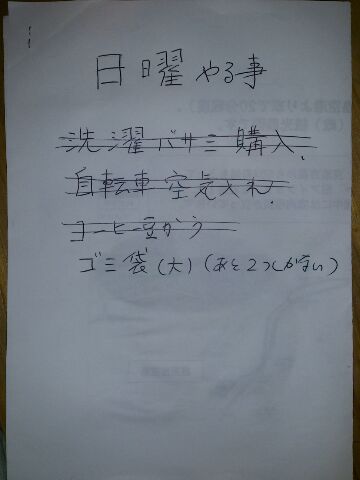 日曜やる事
洗濯バサミ購入.
自転車空気入れ.
コーヒー豆かう
ゴミ袋(大)(あと2つしかない)